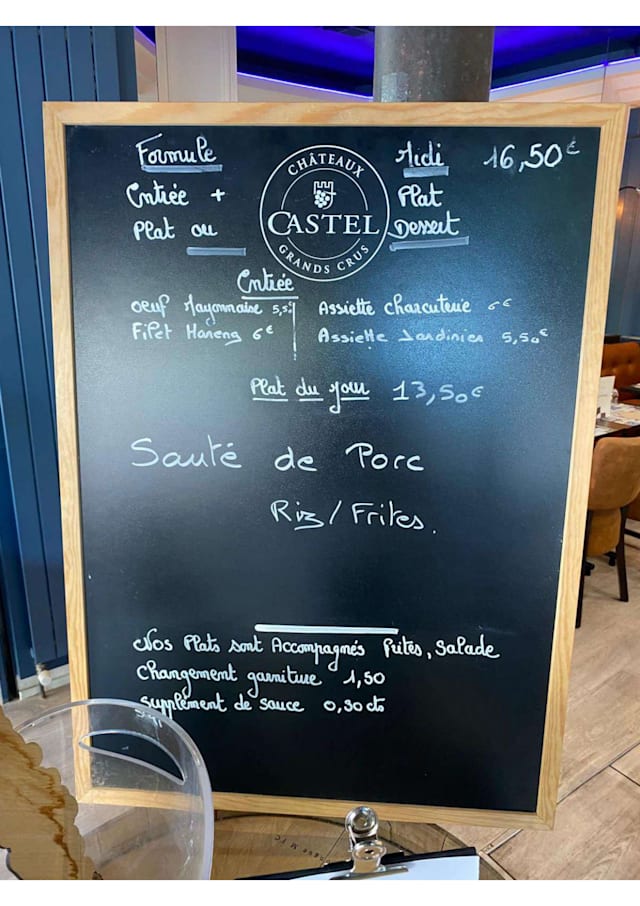 Formule Midi 16,50€
CHÂTEAUX
CASTEL
GRANDS CRUS
Entrée + Plat
Plat ou Dessert
Entrée
Oeuf Mayonnaise 5,5€ Assiette Charcuterie 6€
Filet Hareng 6€ Assiette Jardinier 5,50€
Plat du jour 13,50€
Sauté de Porc
Riz/Frites.
Nos Plats sont Accompagnés frites, salade
Changement garniture 1,50
Supplément de sauce 0,30 cts